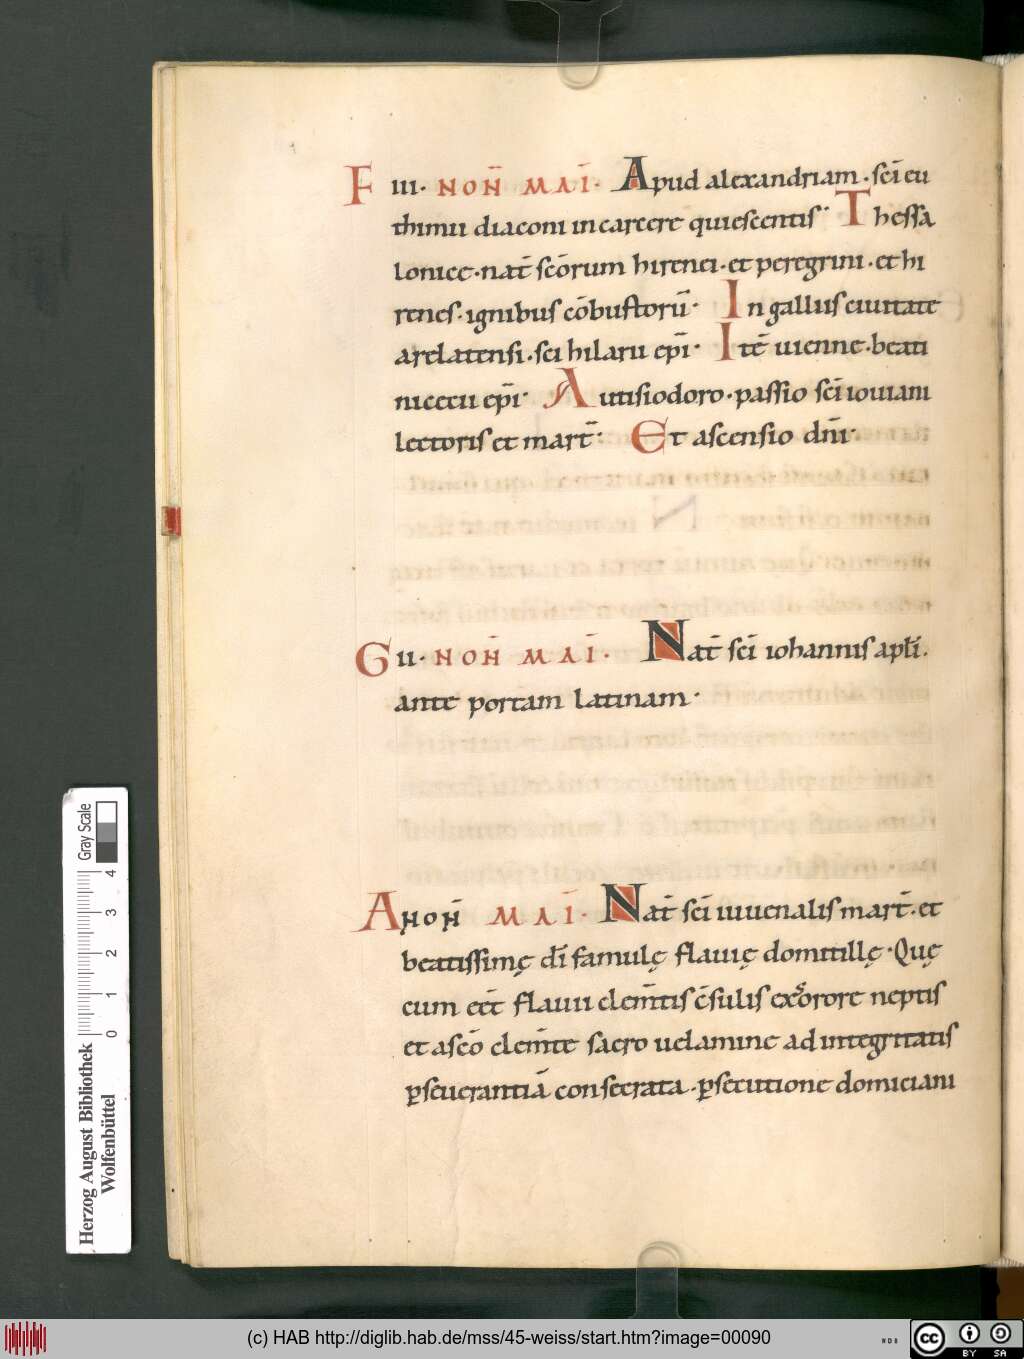 F III· NOÑ MAĪ· Apud alexandriam· scī eu
thimii diaconi in carcere quiescentis· Thessa
lonice· nat̄ scōrum hirenei· et peregrini· et hi
renes· ignibus cōbustorū· In galliis ciuitate
arelatensi· sci hilarii ep̄i· Itē uienne· beati
nicetii ep̄i· Autisiodoro· passio scī iouiani
lectoris et mart̄· Et ascensio dn̄i·
G II· NOÑ MAĪ· Nat̄ scī iohannis apl̄i·
ante portam latinam·
A NOÑ MAĪ· Nat̄ scī iuuenalis mart̄· et
beatissimę dī famulę flauię domitillę· Quę
cum eēt flauii clem̄tis c̄sulis ex sorore neptis
et a scō clem̄te sacro uelamine ad integritatis
p̱seuerantiā consecrata· p̱secutione domiciani
Gray Scale
0 1 2 3 4
Herzog August Bibliothek
Wolfenbüttel
(c) HAB http://diglib.hab.de/mss/45-weiss/start.htm?image=00090
cc BY SA